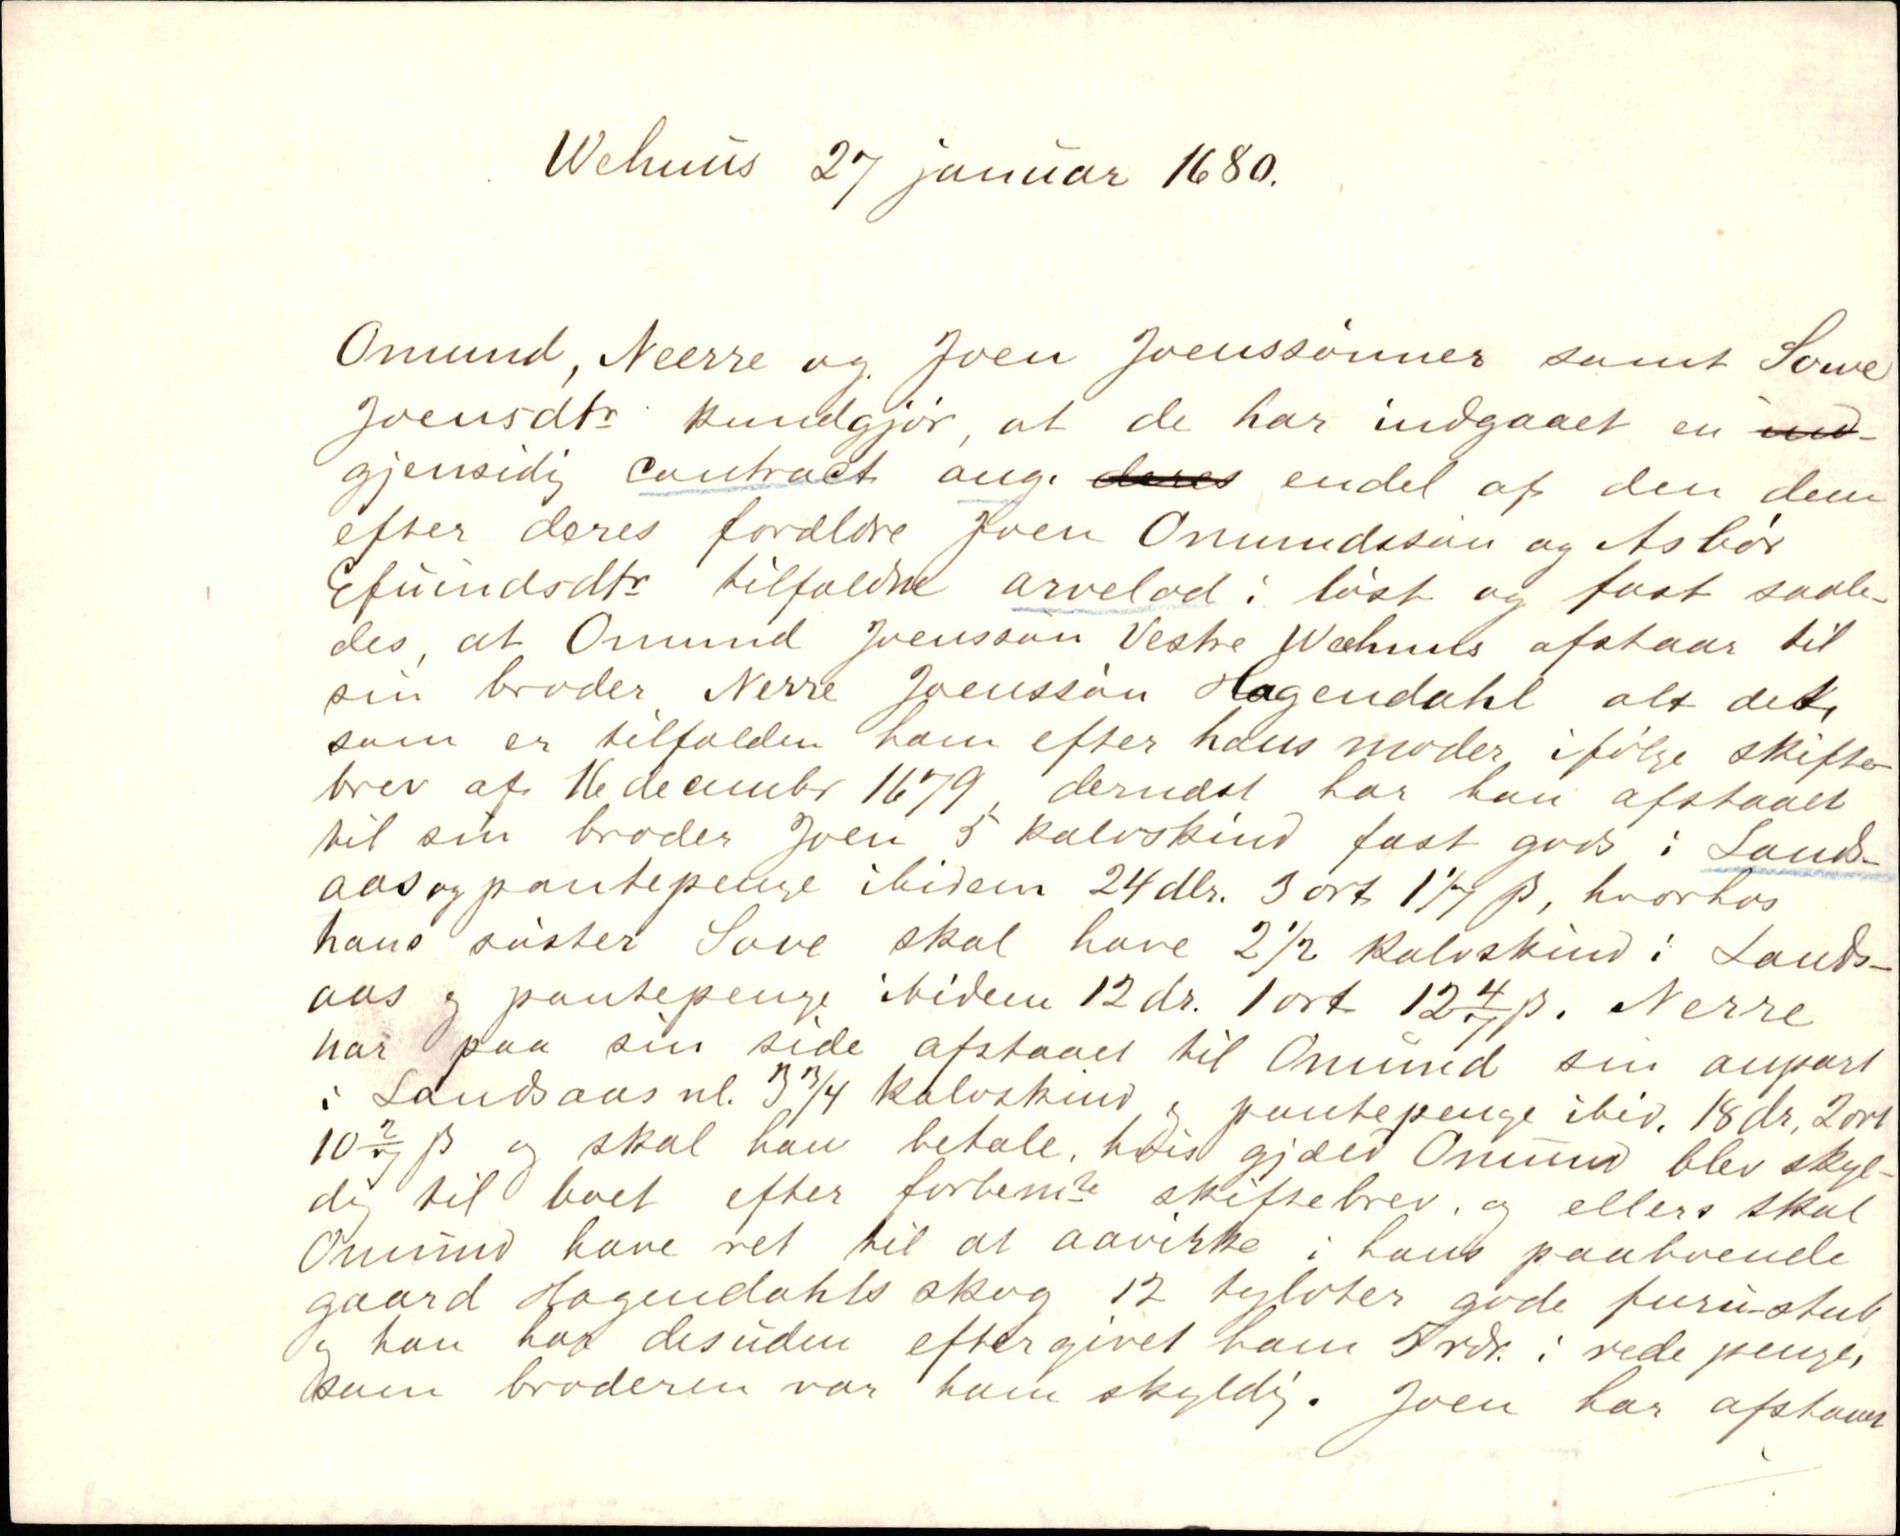 Wehuus 27 januar 1680.
Omund, Neerre og Joen Joenssønner samt Sowe
Joensdtr kundgjør, at de har indgaaet en ind-
gjensidig contract ang. deres endel af den dem
efter deres forældre Joen Omundssøn og Asbør
Efuindsdtr tilfaldne arvelod i løst og fast saale-
des, at Omund Joenssøn Vestre Wæhuus afstaar til
sin broder Nerre Joenssøn Hagendahl alt det,
som er tilfalden ham efter hans moder ifølge skifte-
brev af 16 decembr 1679, dernæst har han afstaaet
til sin broder Joen 5 kalvskind fast gods i Lands-
aas og pantepenge ibidem 24 dlr. 3 ort 1 1/7 β, hvorhos
hans søster Sove skal have 2 1/2 kalvskind i Lands-
aas og pantepenge ibidem 12 dr. 1 ort 12 4/7 β. Nerre
har paa sin side afstaaet til Omund sin anpart
i Landsaas nl. 3 3/4 kalvskind og pantepenge ibid. 18 dr. 2 ort
10 2/7 β og skal han betale, hvis gjæld Omund blev skyl-
dig til boet efter forbemte skiftebrev, og ellers skal
Omund have ret til at aavirke i hans paaboende
gaard Hagendahls skog 12 tylvter gode furu-stub
og han har desuden eftergivet ham 5 rdr. i rede penge,
som broderen var ham skyldig. Joen har afstaaet